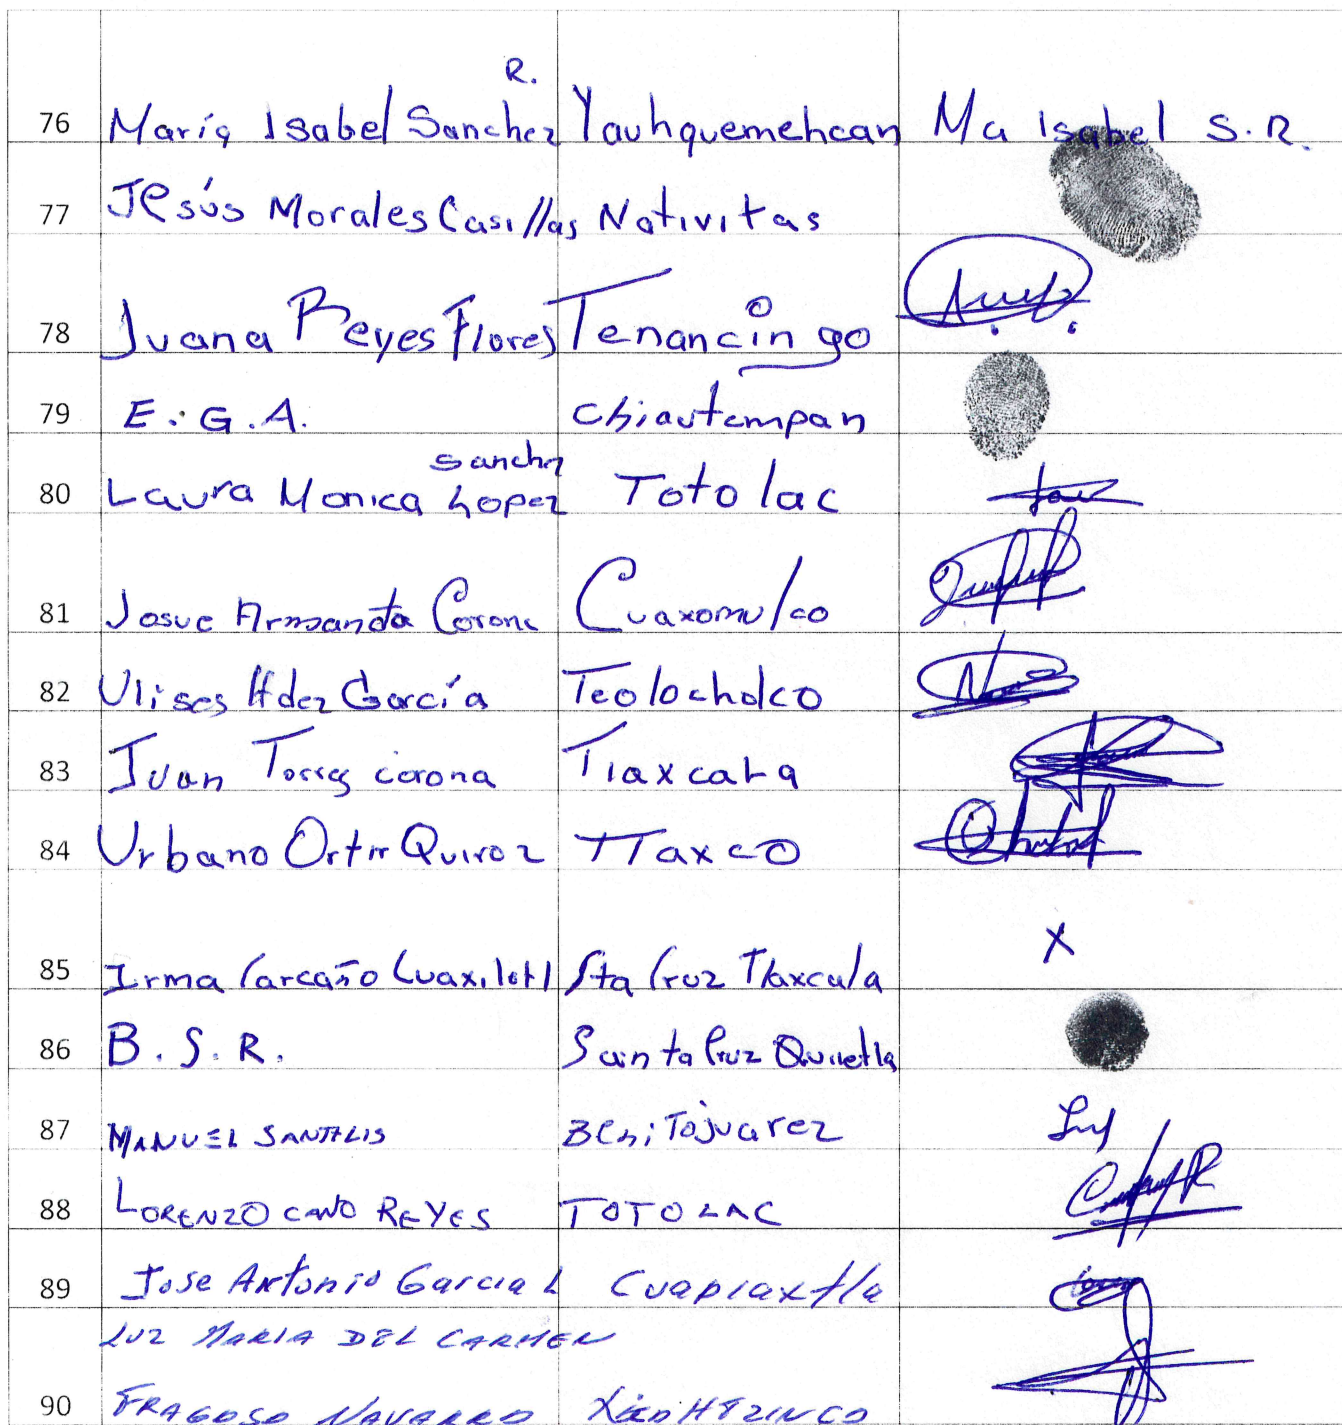 R.
76 María Isabel Sanchez Yauhquemehcan Ma Isabel S.R.
77 Jesús Morales Casillas Nativitas
78 Juana Reyes Flores Tenancingo
79 E. G. A. Chiautempan
Sanchz
80 Laura Monica Lopez Totolac
81 Josue Armando Corona Cuaxomulco
82 Ulises Hdez García Teolocholco
83 Juan Torres corona Tlaxcala
84 Urbano Ortiz Quiroz Tlaxco
85 Irma Carcaño Cuaxilotl Sta Cruz Tlaxcala
X
86 B. S. R. Santa Cruz Quiletla
87 MANUEL SANTALIS Benito juarez
88 LORENZO CANO REYES TOTOLAC
89 Jose Antonio Garcia L Cuapiaxtla
LUZ MARIA DEL CARMEN
90 FRAGOSO NAVARRO